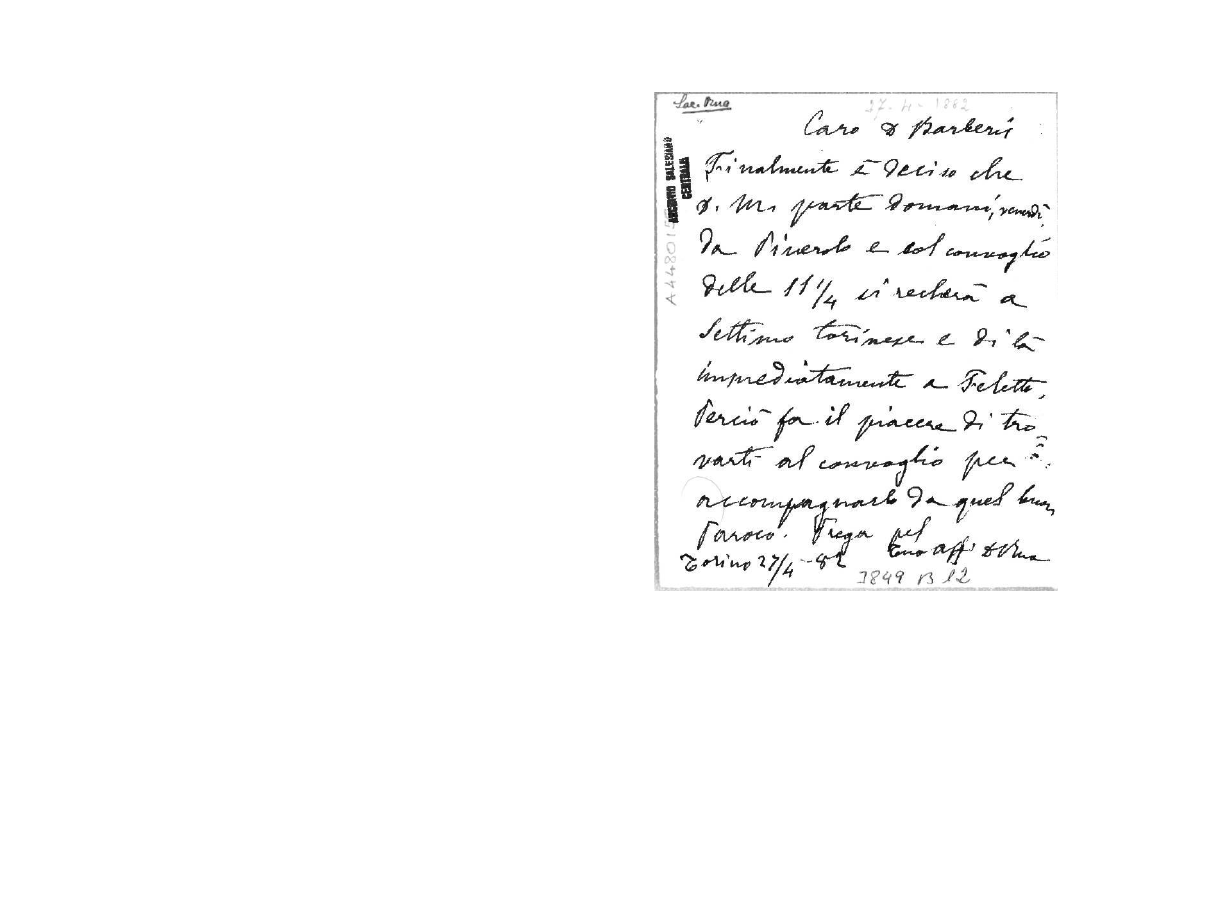 Sac. Rua
27-4-1882
Caro D Barberis
Finalmente è deciso che
D. M. parte domani, venerdì,
da Pinerolo e col convoglio
delle 11 1/4 si recherà a
Settimo torinese e di là
immediatamente a Feletto,
Perciò fa il piacere di tro
varti al convoglio per
accompagnarlo da quel buon
Paroco. Prega pel
Tuo aff. D Rua
Torino 27/4-82
3849 B 12
ARCHIVIO SALESIANO
CENTRALE